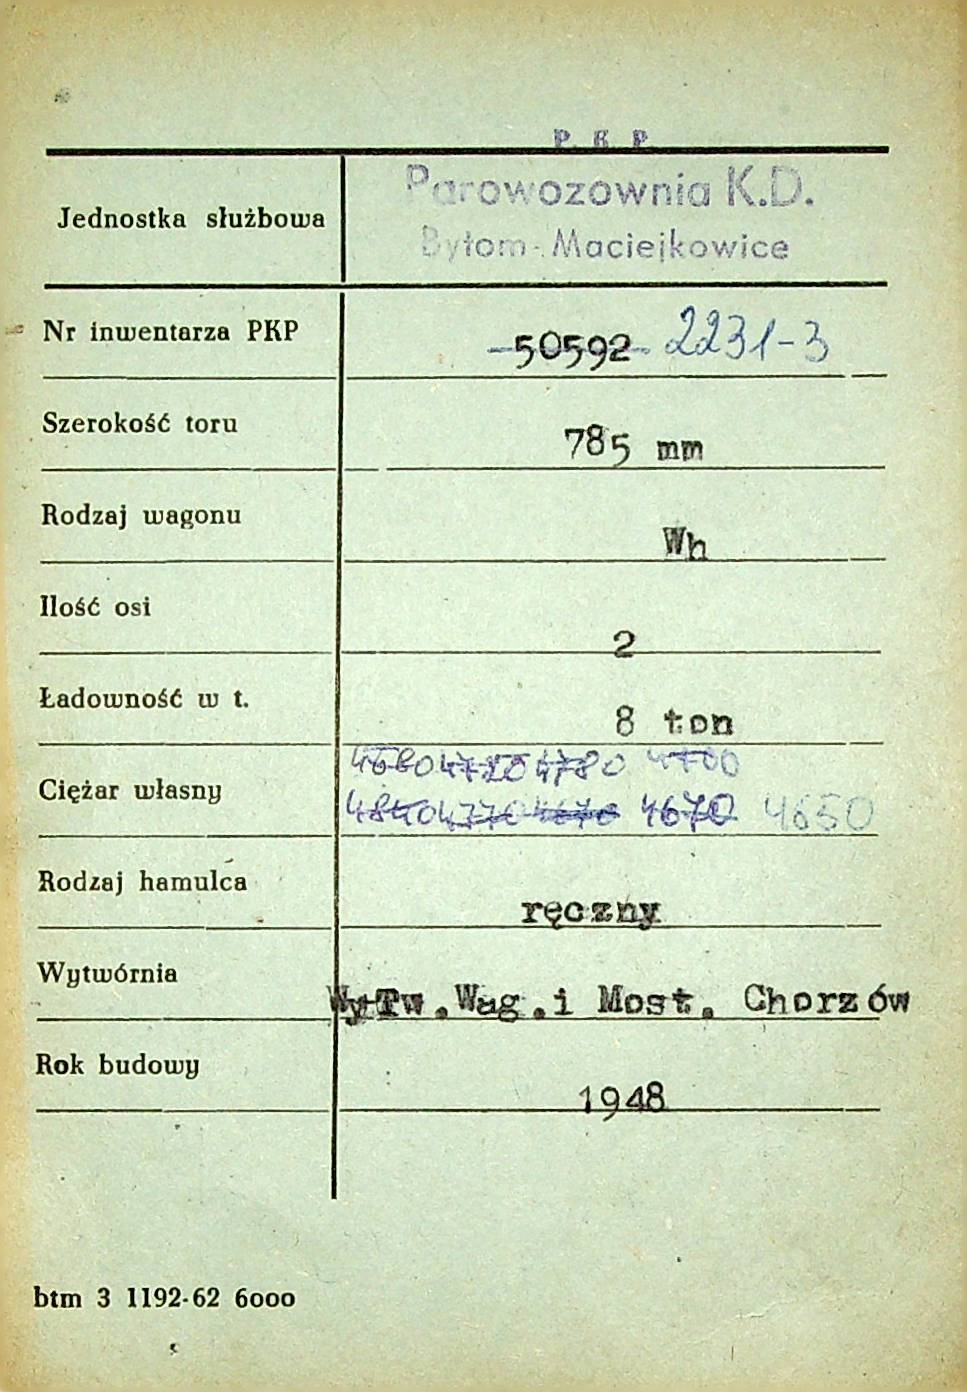 P. K. P.
Parowozownia K.D.
Jednostka służbowa
Bytom-Maciejkowice
Nr inwentarza PKP 50592 2231-3
Szerokość toru 785 mm
Rodzaj wagonu Wh
Ilość osi 2
Ładowność w t. 8 ton
4680 4720 4780 4700
Ciężar własny
4840 4770 4670 4670 4650
Rodzaj hamulca ręczny
Wytwórnia WyTw.Wag.i Most. Chorzów
Rok budowy 1948
btm 3 1192-62 6000